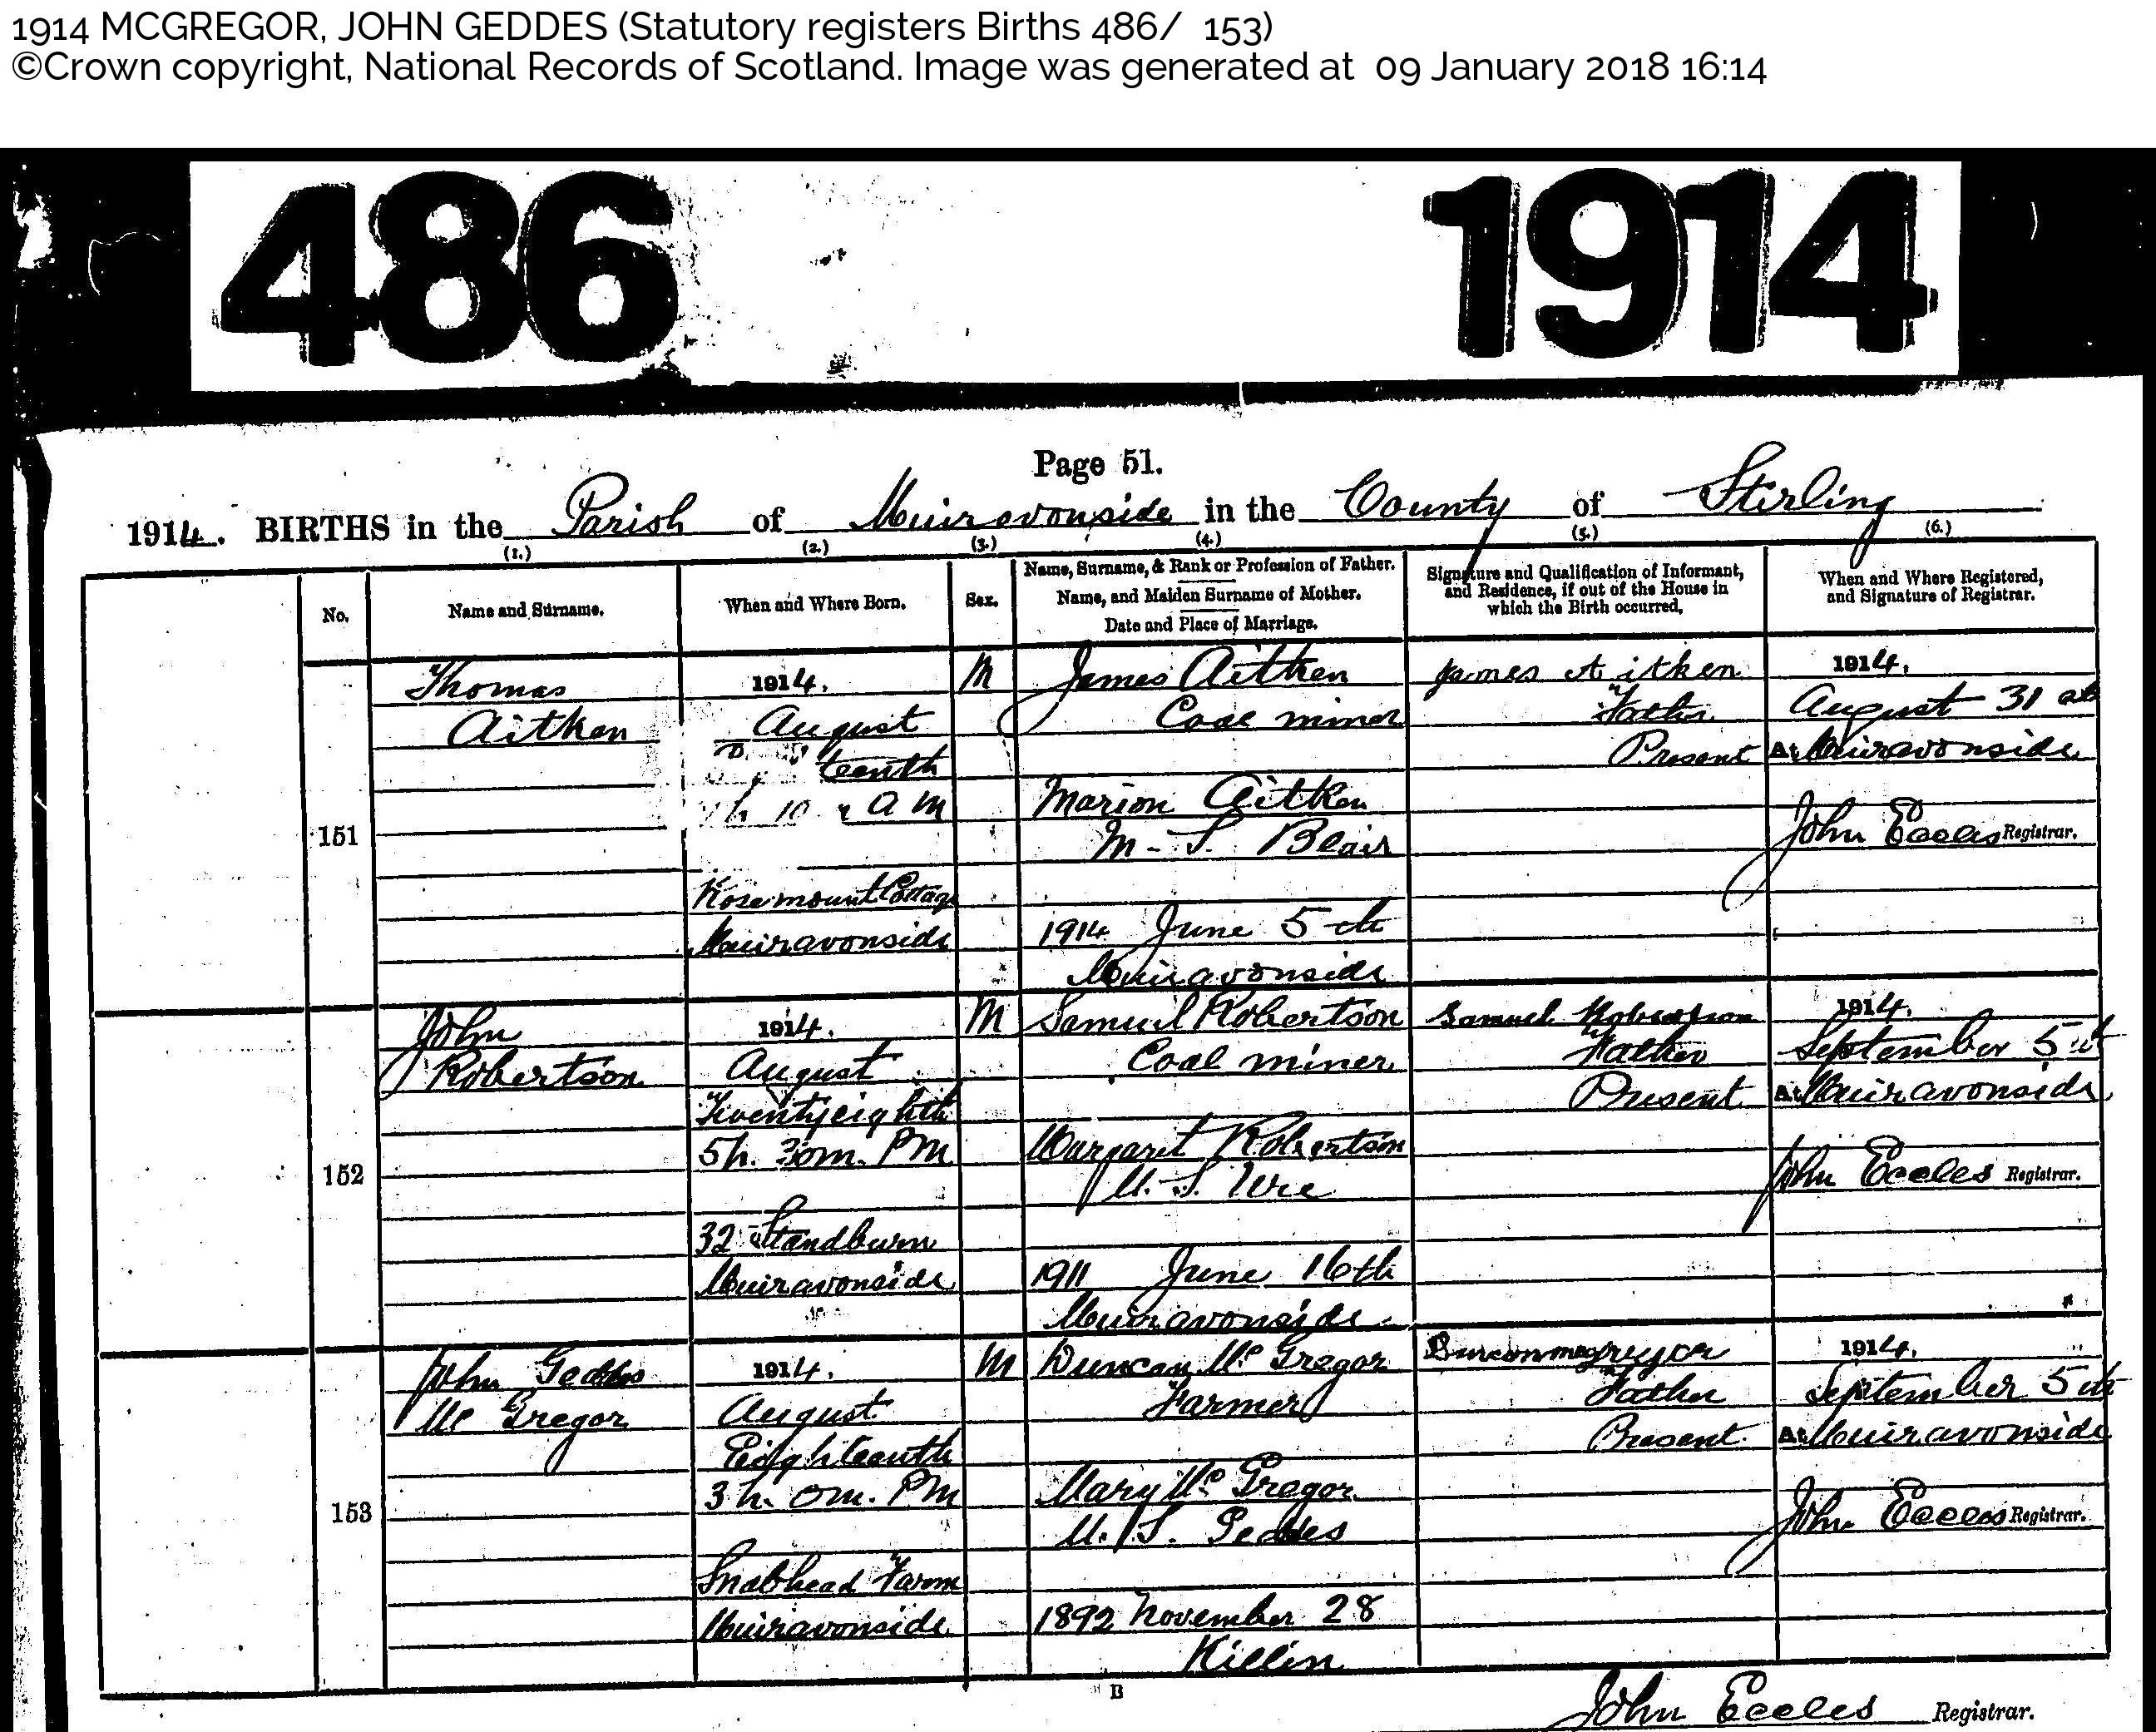 1914 MCGREGOR, JOHN GEDDES (Statutory registers Births 486/ 153)
©Crown copyright, National Records of Scotland. Image was generated at 09 January 2018 16:14
486 1914
Page 51.
1914. BIRTHS in the Parish of Muiravonside in the County of Stirling
(1.) (2.) (3.) (4.) (5.) (6.)
No.
Name and Surname.
When and Where Born.
Sex.
Name, Surname, & Rank or Profession of Father.
Name, and Maiden Surname of Mother.
Date and Place of Marriage.
Signature and Qualification of Informant,
and Residence, if out of the House in
which the Birth occurred.
When and Where Registered,
and Signature of Registrar.
151
Thomas
Aitken
1914.
August
teenth
h 10 AM
Rosemount Cottage
Muiravonside
M
James Aitken
Coal miner
Marion Aitken
M. S. Blair
1914 June 5th
Muiravonside
James Aitken
Father
Present
1914.
August 31st
At Muiravonside
John Eccles Registrar.
152
John
Robertson
1914.
August
Twentyeighth
5h. 30m. PM
32 Standburn
Muiravonside
M
Samuel Robertson
Coal miner
Margaret Robertson
M. S. Ure
1911 June 16th
Muiravonside
Samuel Robertson
Father
Present
1914.
September 5th
At Muiravonside
John Eccles Registrar.
153
John Geddes
Mc Gregor
1914.
August
Eighteenth
3h. 0m. PM
Snabhead Farm
Muiravonside
M
Duncan Mc Gregor
Farmer
Mary Mc Gregor
M. S. Geddes
1892 November 28
Killin
Duncan McGregor
Father
Present
1914.
September 5th
At Muiravonside
John Eccles Registrar.
B
John Eccles Registrar.